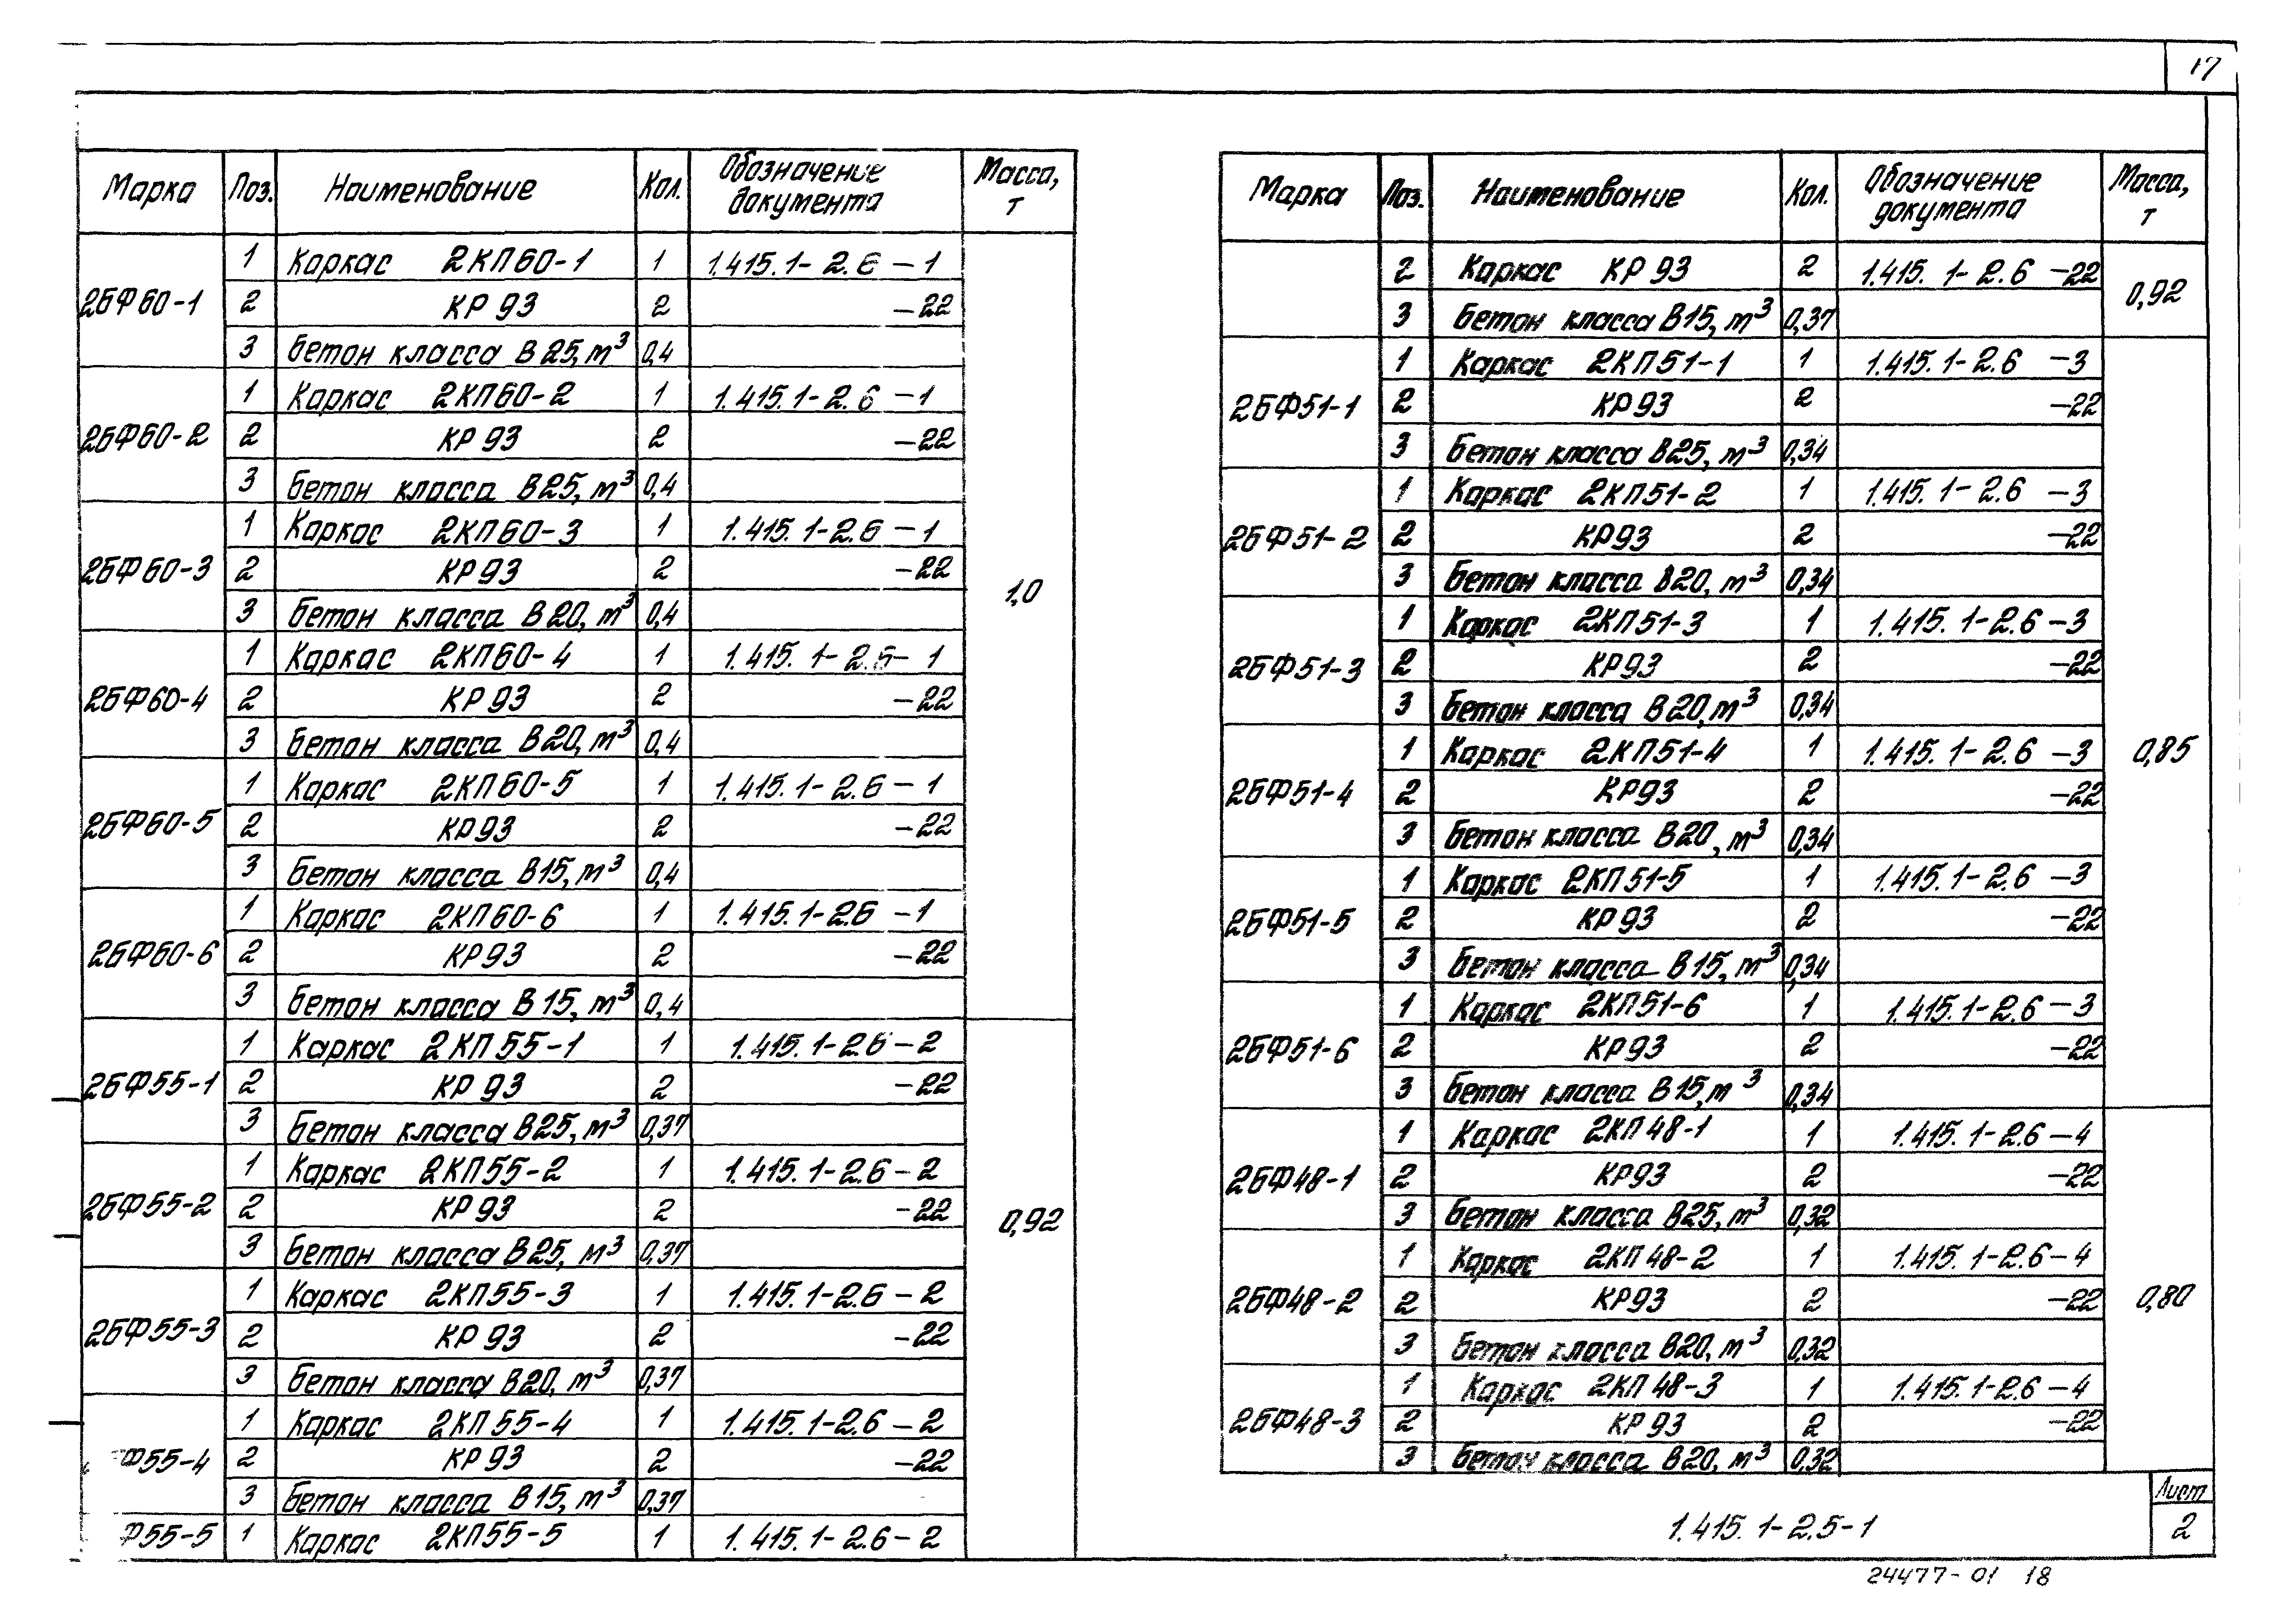 17
Марка Поз. Наименование Кол. Обозначение документа Масса, т
2БФ60-1 1 Каркас 2КП60-1 1 1.415.1-2.6-1 1,0
2 КР93 2 -22
3 Бетон класса В25, м³ 0,4
2БФ60-2 1 Каркас 2КП60-2 1 1.415.1-2.6-1
2 КР93 2 -22
3 Бетон класса В25, м³ 0,4
2БФ60-3 1 Каркас 2КП60-3 1 1.415.1-2.6-1
2 КР93 2 -22
3 Бетон класса В20, м³ 0,4
2БФ60-4 1 Каркас 2КП60-4 1 1.415.1-2.6-1
2 КР93 2 -22
3 Бетон класса В20, м³ 0,4
2БФ60-5 1 Каркас 2КП60-5 1 1.415.1-2.6-1
2 КР93 2 -22
3 Бетон класса В15, м³ 0,4
2БФ60-6 1 Каркас 2КП60-6 1 1.415.1-2.6-1
2 КР93 2 -22
3 Бетон класса В15, м³ 0,4
2БФ55-1 1 Каркас 2КП55-1 1 1.415.1-2.6-2 0,92
2 КР93 2 -22
3 Бетон класса В25, м³ 0,37
2БФ55-2 1 Каркас 2КП55-2 1 1.415.1-2.6-2
2 КР93 2 -22
3 Бетон класса В25, м³ 0,37
2БФ55-3 1 Каркас 2КП55-3 1 1.415.1-2.6-2
2 КР93 2 -22
3 Бетон класса В20, м³ 0,37
Ф55-4 1 Каркас 2КП55-4 1 1.415.1-2.6-2
2 КР93 2 -22
3 Бетон класса В15, м³ 0,37
Ф55-5 1 Каркас 2КП55-5 1 1.415.1-2.6-2
Марка Поз. Наименование Кол. Обозначение документа Масса, т
2 Каркас КР93 2 1.415.1-2.6-22 0,92
3 Бетон класса В15, м³ 0,37
2БФ51-1 1 Каркас 2КП51-1 1 1.415.1-2.6-3 0,85
2 КР93 2 -22
3 Бетон класса В25, м³ 0,34
2БФ51-2 1 Каркас 2КП51-2 1 1.415.1-2.6-3
2 КР93 2 -22
3 Бетон класса В20, м³ 0,34
2БФ51-3 1 Каркас 2КП51-3 1 1.415.1-2.6-3
2 КР93 2 -22
3 Бетон класса В20, м³ 0,34
2БФ51-4 1 Каркас 2КП51-4 1 1.415.1-2.6-3
2 КР93 2 -22
3 Бетон класса В20, м³ 0,34
2БФ51-5 1 Каркас 2КП51-5 1 1.415.1-2.6-3
2 КР93 2 -22
3 Бетон класса В15, м³ 0,34
2БФ51-6 1 Каркас 2КП51-6 1 1.415.1-2.6-3
2 КР93 2 -22
3 Бетон класса В15, м³ 0,34
2БФ48-1 1 Каркас 2КП48-1 1 1.415.1-2.6-4 0,80
2 КР93 2 -22
3 Бетон класса В25, м³ 0,32
2БФ48-2 1 Каркас 2КП48-2 1 1.415.1-2.6-4
2 КР93 2 -22
3 Бетон класса В20, м³ 0,32
2БФ48-3 1 Каркас 2КП48-3 1 1.415.1-2.6-4
2 КР93 2 -22
3 Бетон класса В20, м³ 0,32
1.415.1-2.5-1 Лист 2
24477-01 18